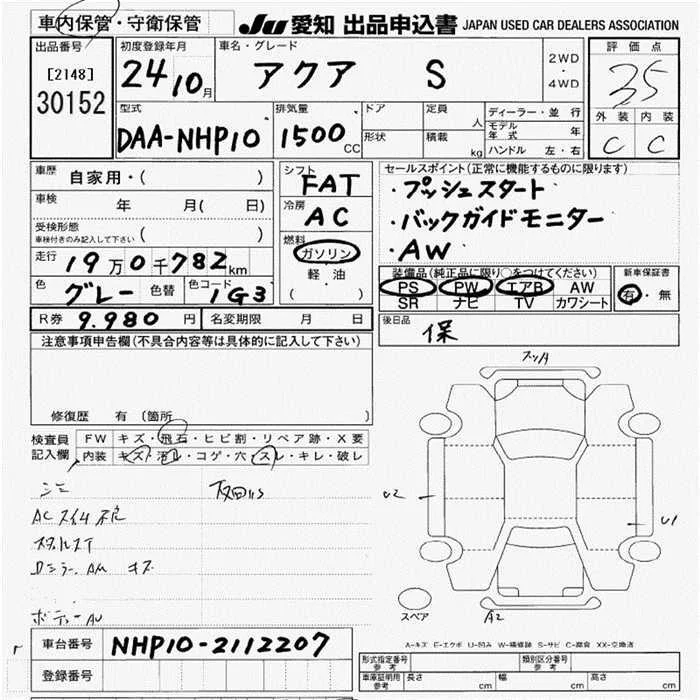 車内保管・守衛保管
JU 愛知 出品申込書 JAPAN USED CAR DEALERS ASSOCIATION
出品番号
[2148]
30152
初度登録年月
24 10月
車名・グレード
アクア S
2WD
・
4WD
評価点
35
外装 内装
C C
型式
DAA-NHP10
排気量
1500 CC
ドア
形状
定員 人
積載 kg
ディーラー・並行
モデル年式 年
ハンドル 左・右
車歴 自家用・( )
車検 年 月( 日)
受検形態
車検付きのみ記入して下さい ( )
走行 19万0千782km
色 グレー 色替 色コード 1G3
シフト
FAT
冷房
AC
燃料
ガソリン
軽・油
( )
セールスポイント(正常に機能するものに限ります)
・プッシュスタート
・バックガイドモニター
・AW
装備品(純正品に限り○をつけてください)
PS PW エアB AW
SR ナビ TV カワシート
新車保証書
有・無
R券 9.980 円 名変期限 月 日
後日品
保
注意事項申告欄(不具合内容等は具体的に記入して下さい)
修復歴 有 (箇所 )
検査員記入欄
FW キズ・飛石・ヒビ割・リペア跡・X要
内装 キズ・汚レ・コゲ・穴・スレ・キレ・破レ
シミ
AC スイル不良
ボディーAU
U2
U1
A2
スペア
A-キズ E-エクボ U-凹み W-補修跡 S-サビ C-腐食 XX-交換済
車台番号 NHP10-2112207
登録番号
形式指定番号
参考
類別区分番号
参考
車庫証明用
参考
長さ cm 幅 cm 高さ cm